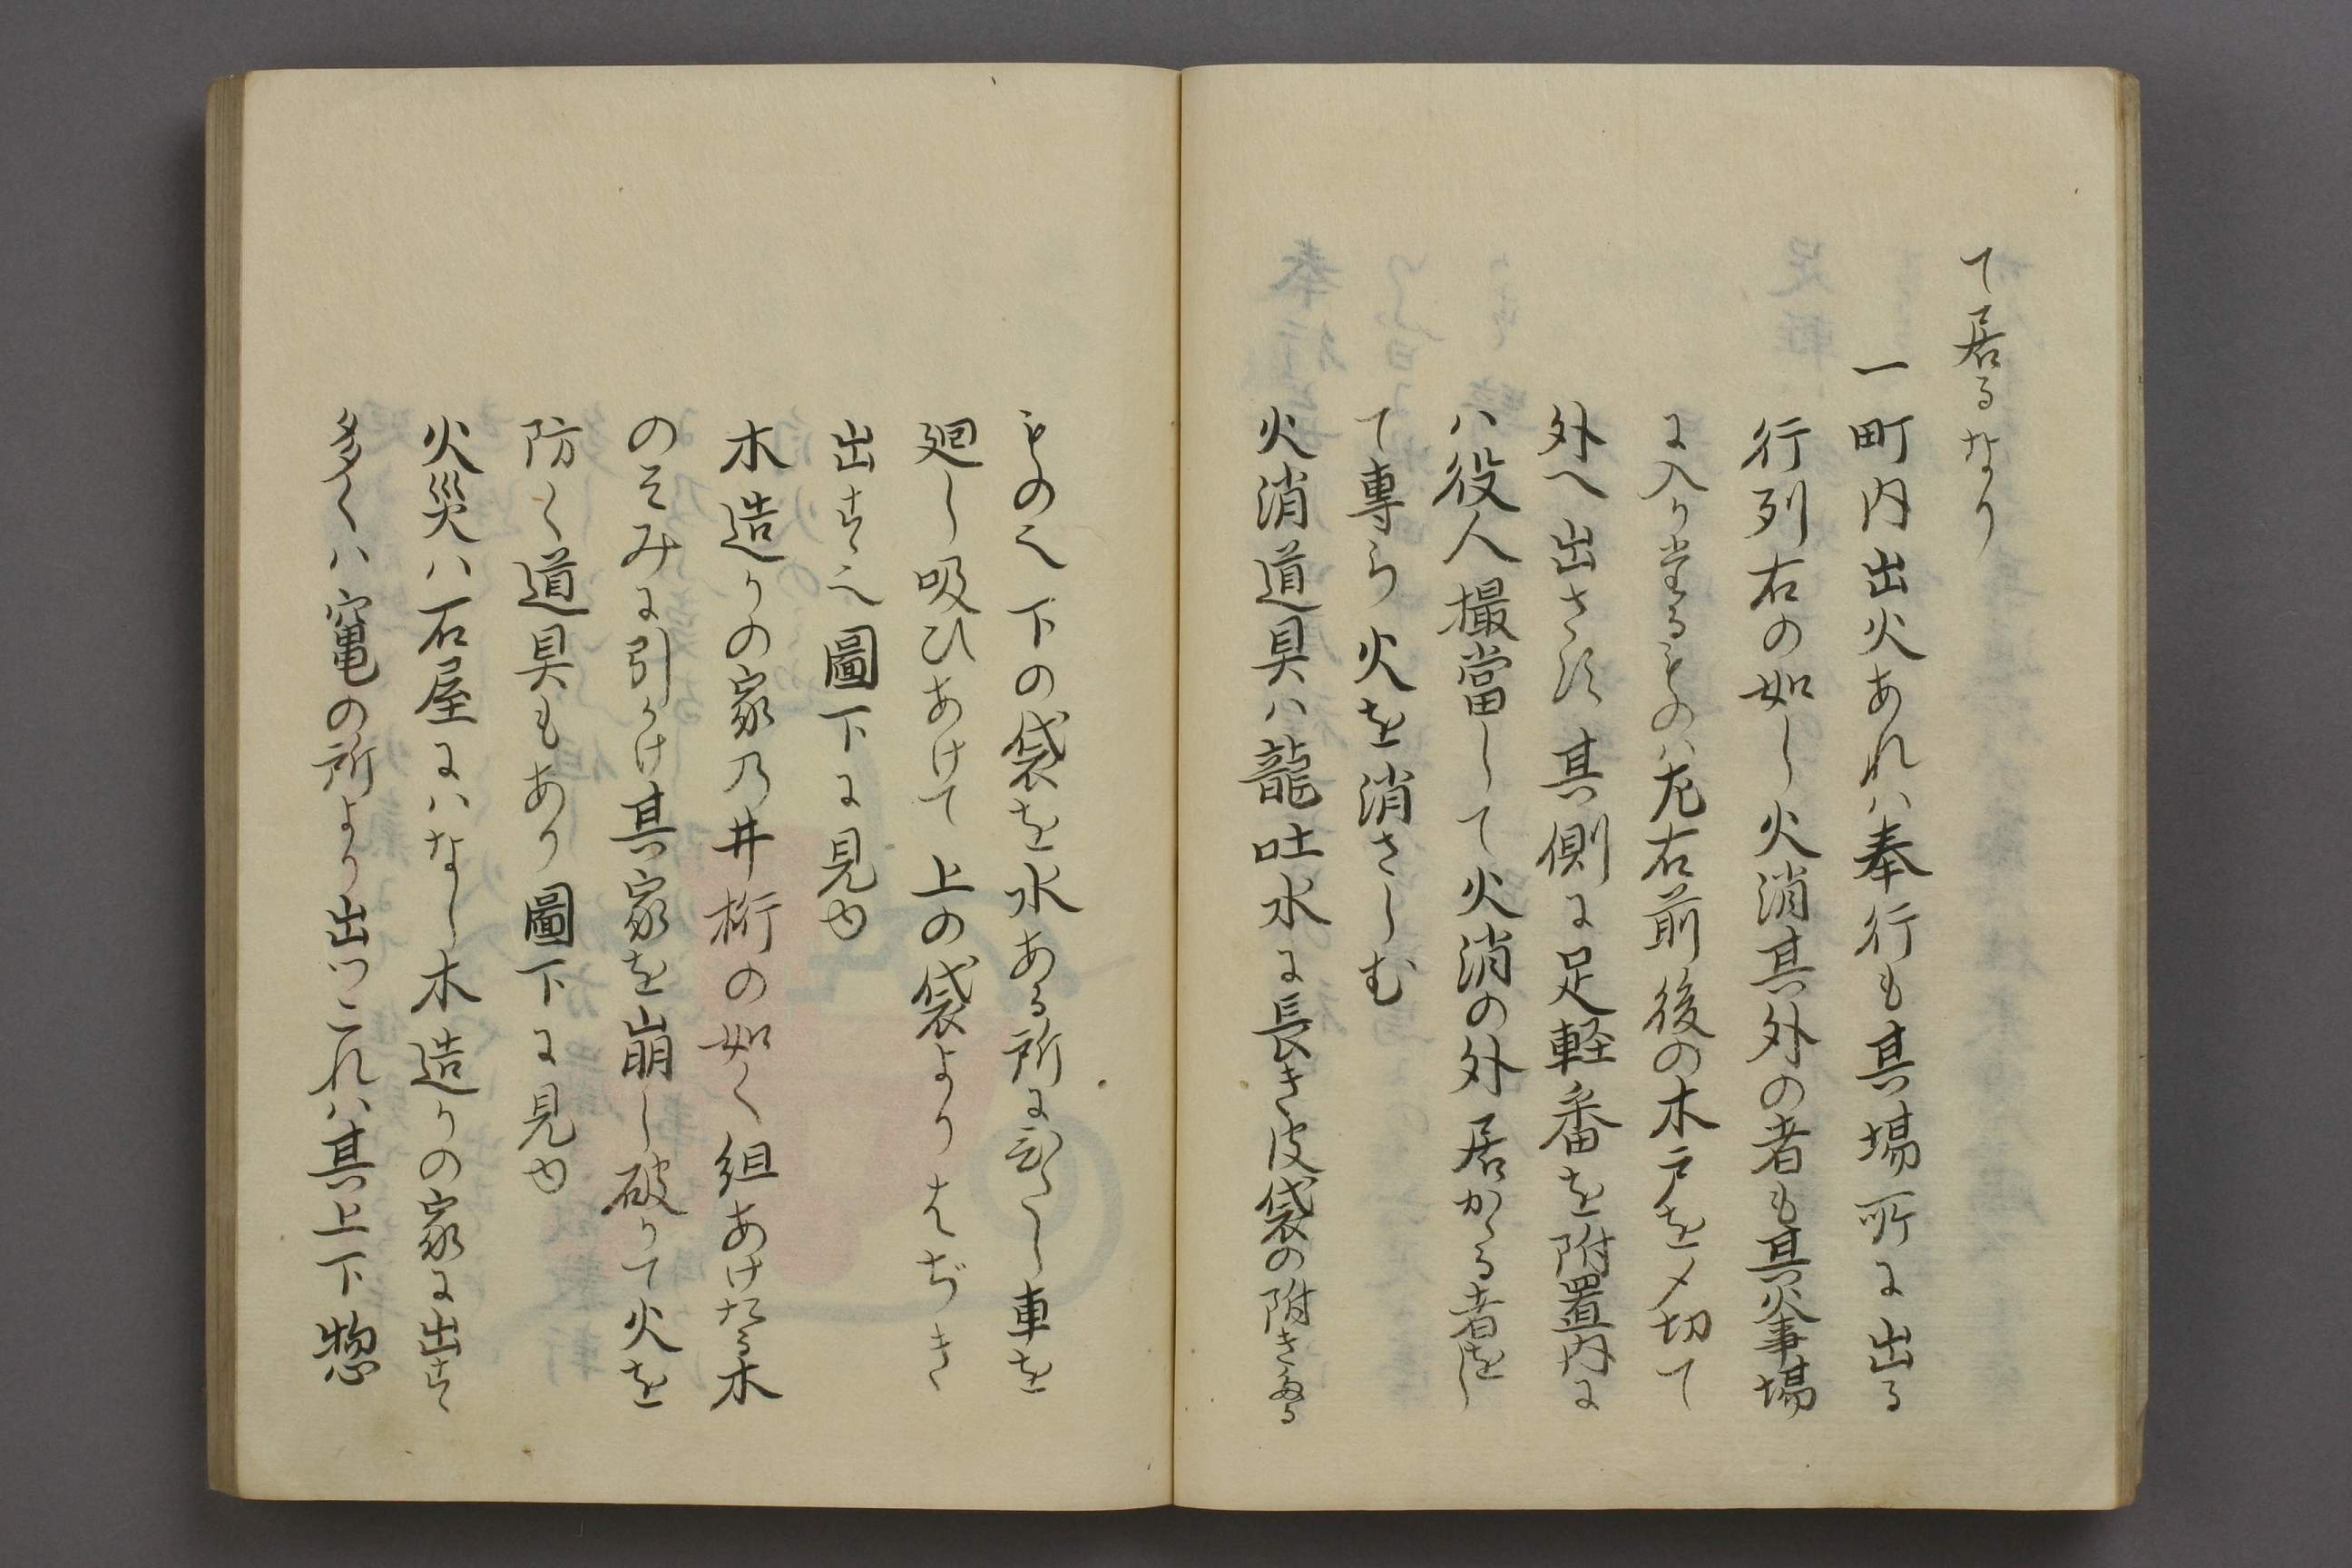 て居るなり
一町内出火あれハ奉行も其場所に出る
行列右の如し火消其外の者も其火事場
に入り当るものハ左右前後の木戸を〆切て
外へ出さす其側に足軽番を附置内に
ハ役人撮當して火消の外居かゝる者を
て専ら火を消さしむ
火消道具ハ龍吐水に長き皮袋の附きたる
もの也下の袋を水ある所にひたし車を
廻し吸ひあけて上の袋よりはぢき
出す也圖下に見ゆ
木造りの家乃井桁の如く組あけたる木
のすみに引かけ其家を崩し破りて火を
防く道具もあり圖下に見ゆ
火災ハ石屋にハなし木造りの家に出す
多くハ竃の所より出つこれハ其上下惣